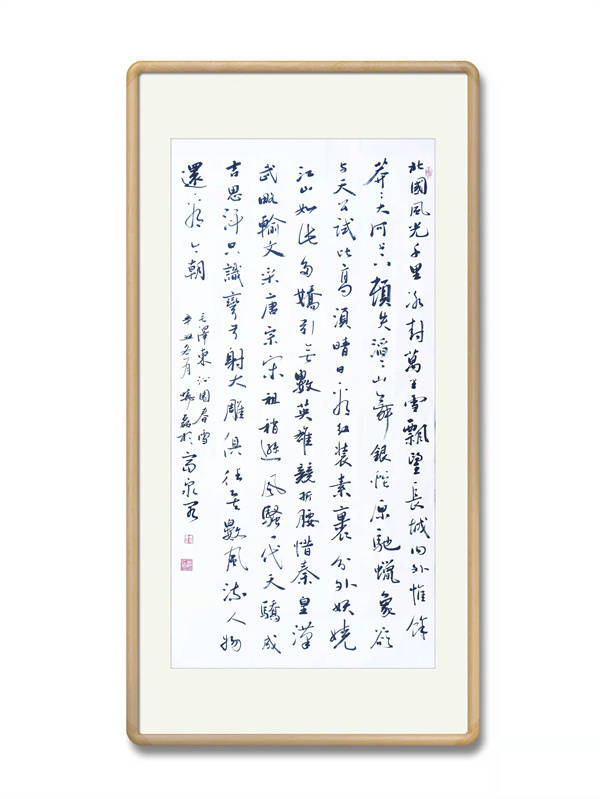 北國風光千里冰封萬里雪飄望長城内外惟餘
莽〻大河上下頓失滔〻山舞銀蛇原馳蠟象欲
与天公試比高須晴日看紅裝素裹分外妖嬈
江山如此多嬌引無數英雄競折腰惜秦皇漢
武略輸文采唐宗宋祖稍遜風騷一代天驕成
吉思汗只識彎弓射大雕俱往矣數風流人物
還看今朝
毛澤東沁園春雪
辛丑冬月